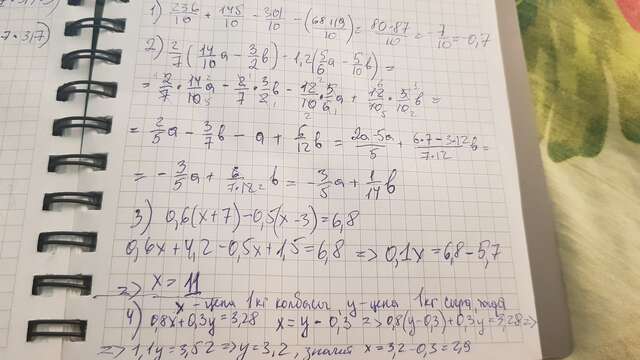 1) 236/10 + 145/10 - 301/10 - (68+19/10) = 80-87/10 = -7/10 = -0,7
2) 2/7 (14/10 a - 3/2 b) - 1,2 (5/6 a - 5/10 b) =
= 2/7 · 14/10 a - 2/7 · 3/2 b - 12/10 · 5/6 a + 12/10 · 5/10 b =
= 2/5 a - 3/7 b - a + 6/12 b = 2a-5a/5 + 6·7-3·12/7·12 b =
= -3/5 a + 6/7·12 b = -3/5 a + 1/14 b
3) 0,6(x+7)-0,5(x-3)=6,8
0,6x+4,2-0,5x+1,5=6,8 => 0,1x=6,8-5,7
=> x = 11
x - цена 1кг колбасы y - цена 1кг сыра, тогда
4) 0,8x+0,3y=3,28 x = y - 0,3 => 0,8(y-0,3)+0,3y=3,28 =>
=> 1,1y=3,52 => y=3,2, значит x=3,2-0,3=2,9